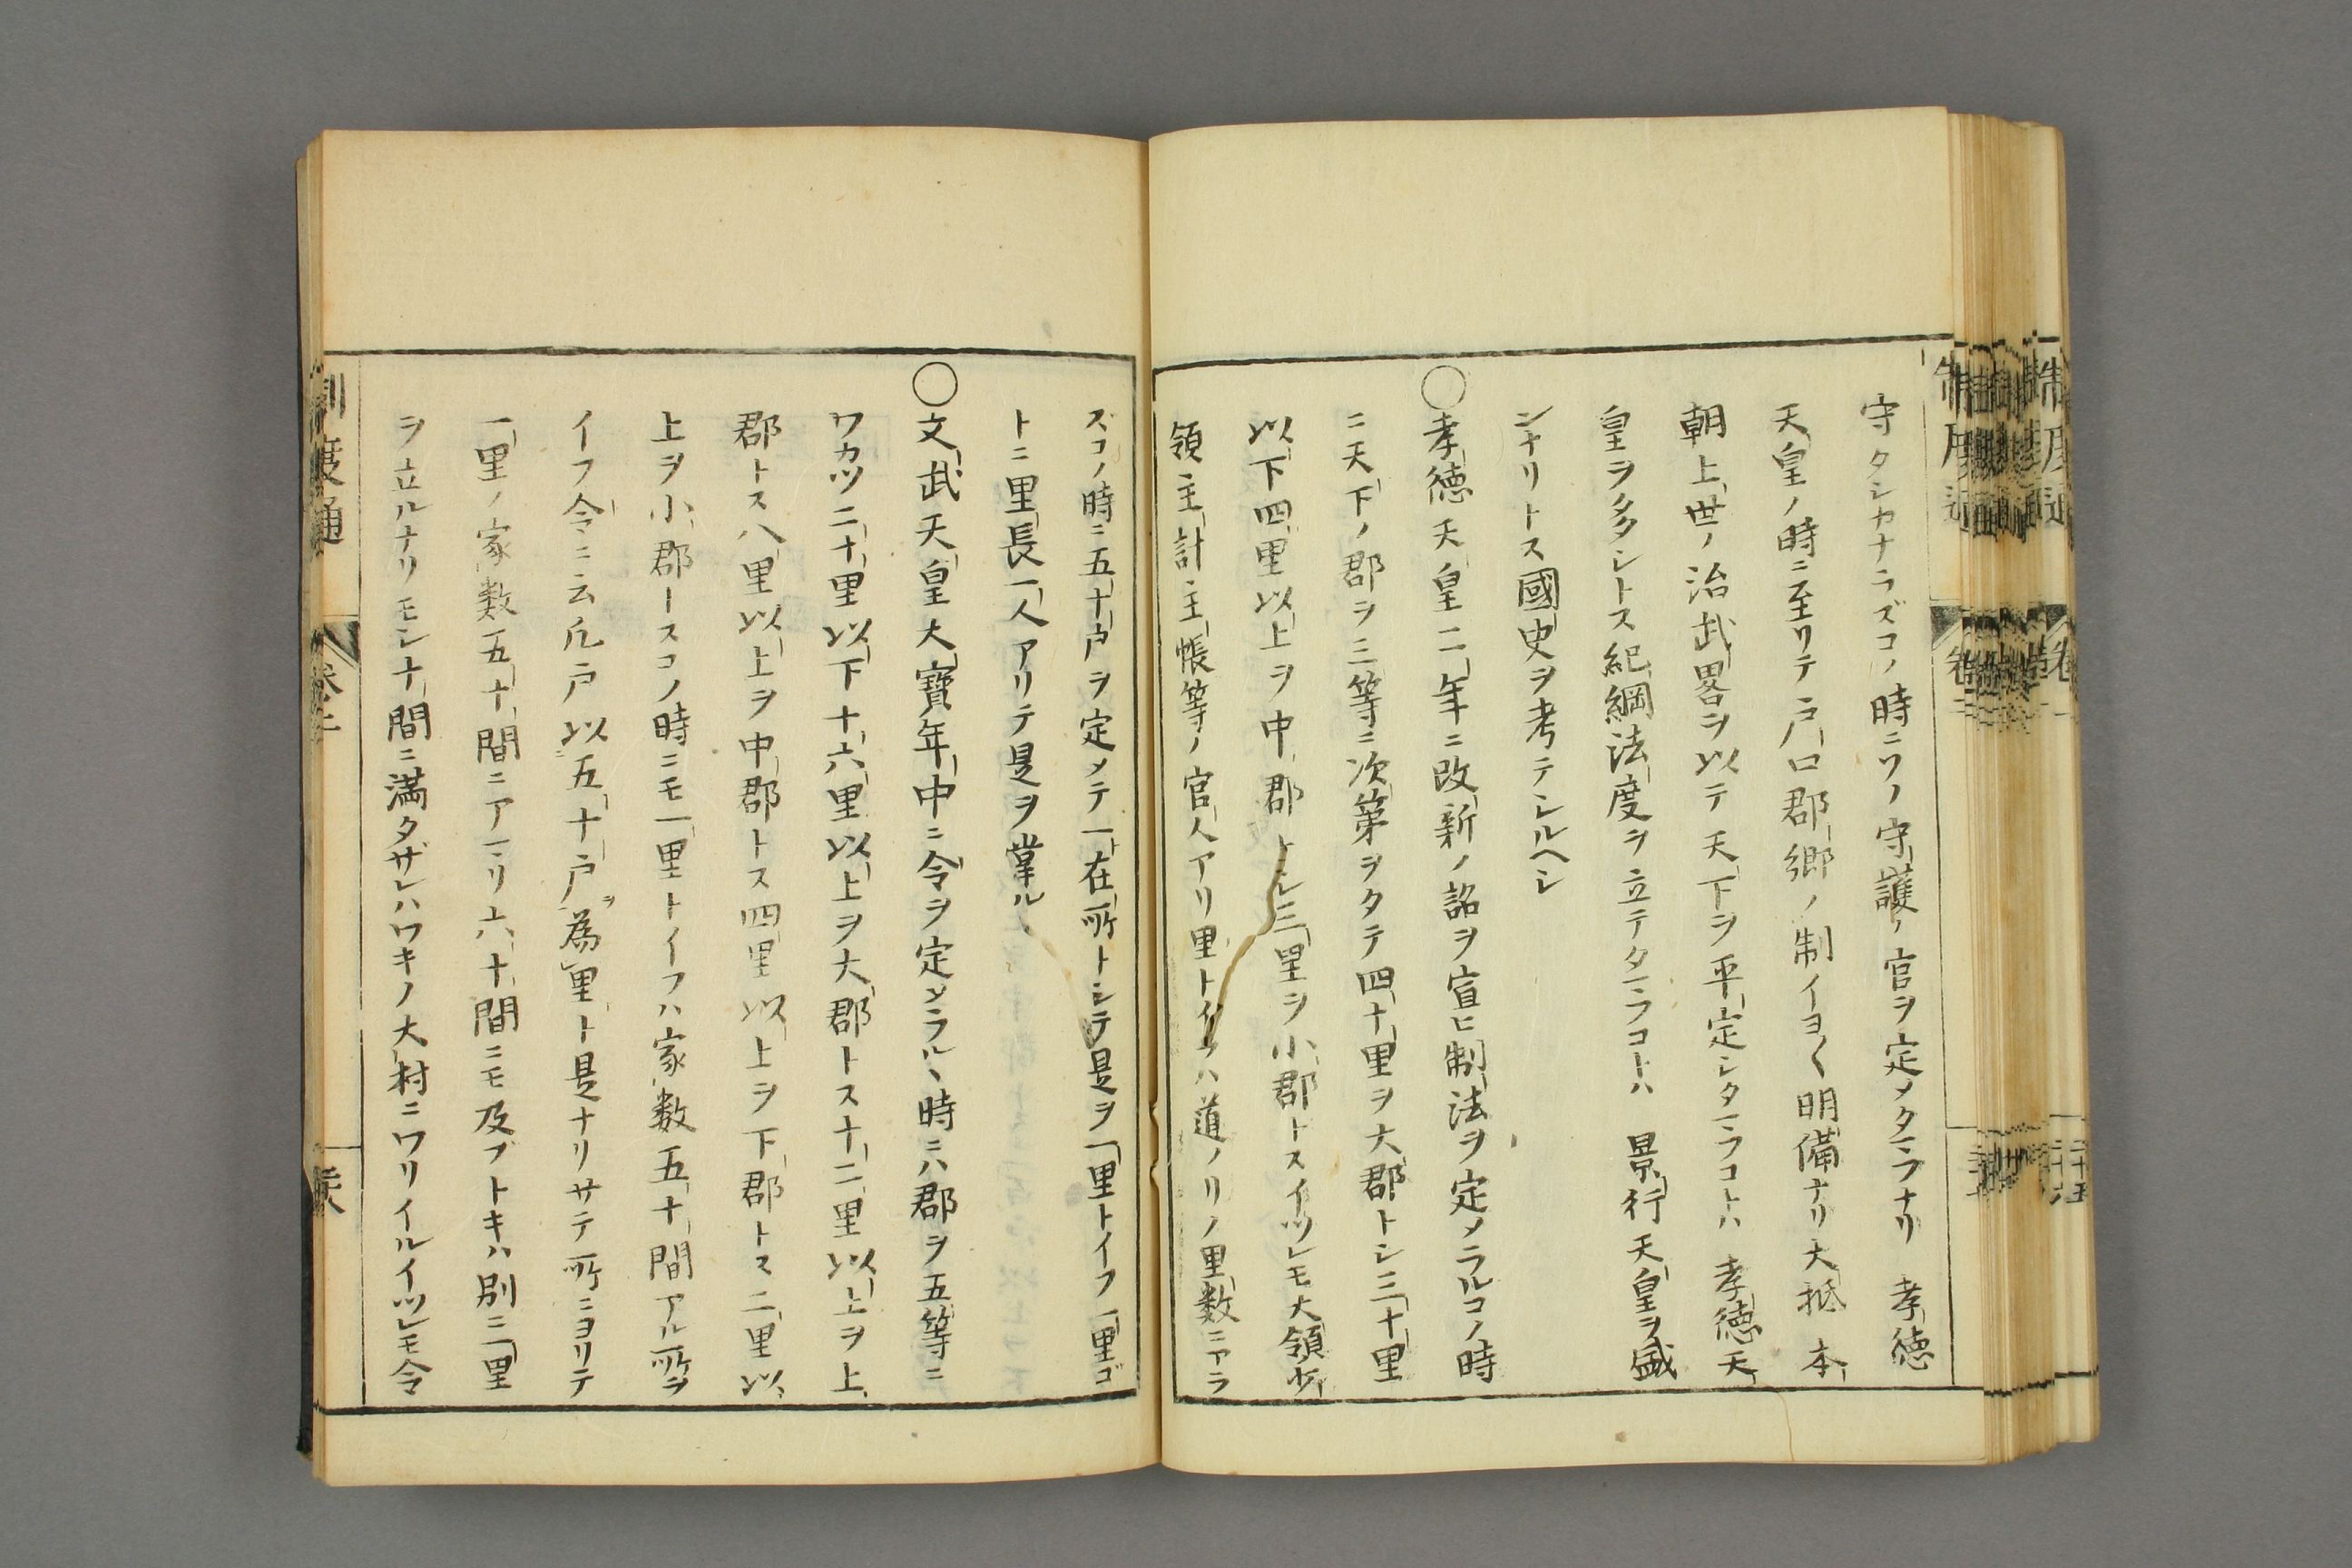 守タシカナラズコノ時ニワノ守護ノ官ヲ定メタマフナリ　孝徳
天皇ノ時ニ至リテ戸口郡郷ノ制イヨ〱明備ナリ大抵　本
朝上世ノ治武畧ヲ以テ天下ヲ平定シタマフコトハ　孝徳天
皇ヲ多シトス紀綱法度ヲ立テタマフコトハ　景行天皇ヲ盛
ンナリトス國史ヲ考テシルヘシ
○孝徳天皇二年ニ改新ノ詔ヲ宣ヒ制法ヲ定メラルコノ時
ニ天下ノ郡ヲ三等ニ次第ヲタテ四十里ヲ大郡トシ三十里
以下四里以上ヲ中郡トシ三里ヲ小郡トスイツレモ大領少
領主計主帳等ノ官人アリ里トイフハ道ノリノ里数ニアラ
ズコノ時ニ五十戸ヲ定メテ一在所トシテ是ヲ一里トイフ一里ゴ
トニ里長一人アリテ是ヲ掌ル
○文武天皇大寶年中ニ令ヲ定メラルヽ時ニハ郡ヲ五等ニ
ワカツ二十里以下十六里以上ヲ大郡トス十二里以上ヲ上
郡トス八里以上ヲ中郡トス四里以上ヲ下郡トス二里以
上ヲ小郡トスコノ時ニモ一里トイフハ家数五十間アル所ヲ
イフ令ニ云凡戸以五十戸ヲ為里ト是ナリサテ所ニヨリテ
一里ノ家数五十間ニアマリ六十間ニモ及フトキハ別ニ一里
ヲ立ルナリモシ十間ニ満タザレハワキノ大村ニワリイルイツレモ令
制度通
卷二